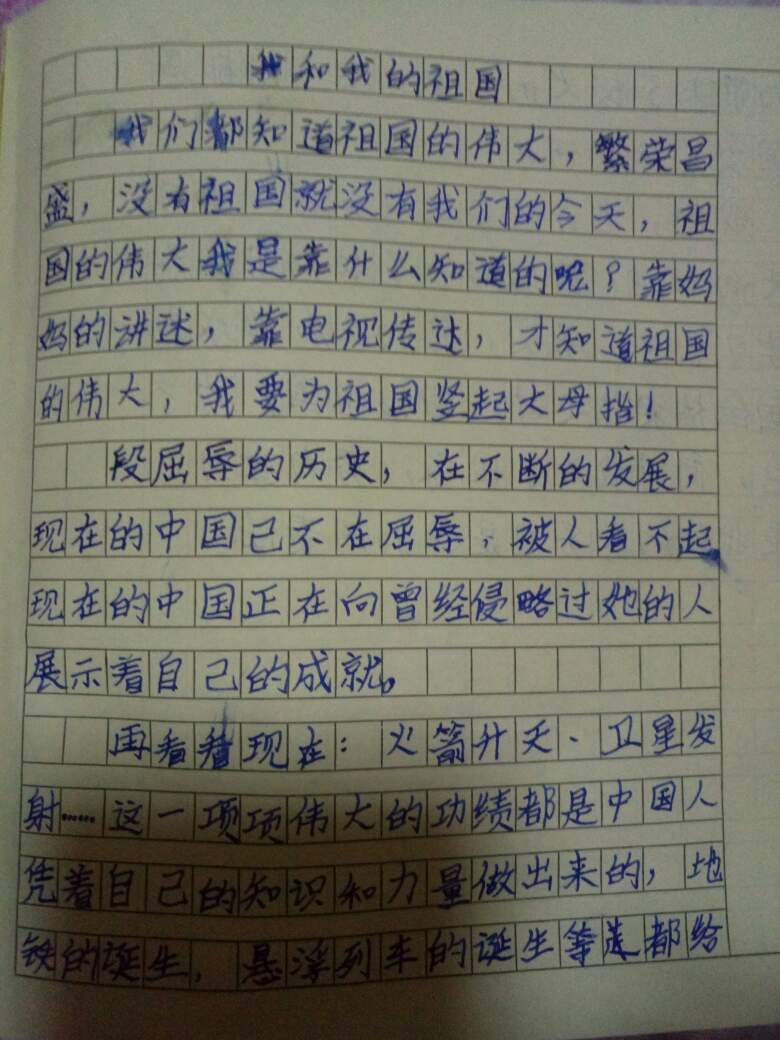 我和我的祖国
我们都知道祖国的伟大，繁荣昌
盛，没有祖国就没有我们的今天，祖
国的伟大我是靠什么知道的呢？靠妈
妈的讲述，靠电视传达，才知道祖国
的伟大，我要为祖国竖起大母指！
段屈辱的历史，在不断的发展，
现在的中国已不在屈辱，被人看不起，
现在的中国正在向曾经侵略过她的人
展示着自己的成就。
再看看现在：火箭升天、卫星发
射……这一项项伟大的功绩都是中国人
凭着自己的知识和力量做出来的，地
铁的诞生，悬浮列车的诞生等这都给